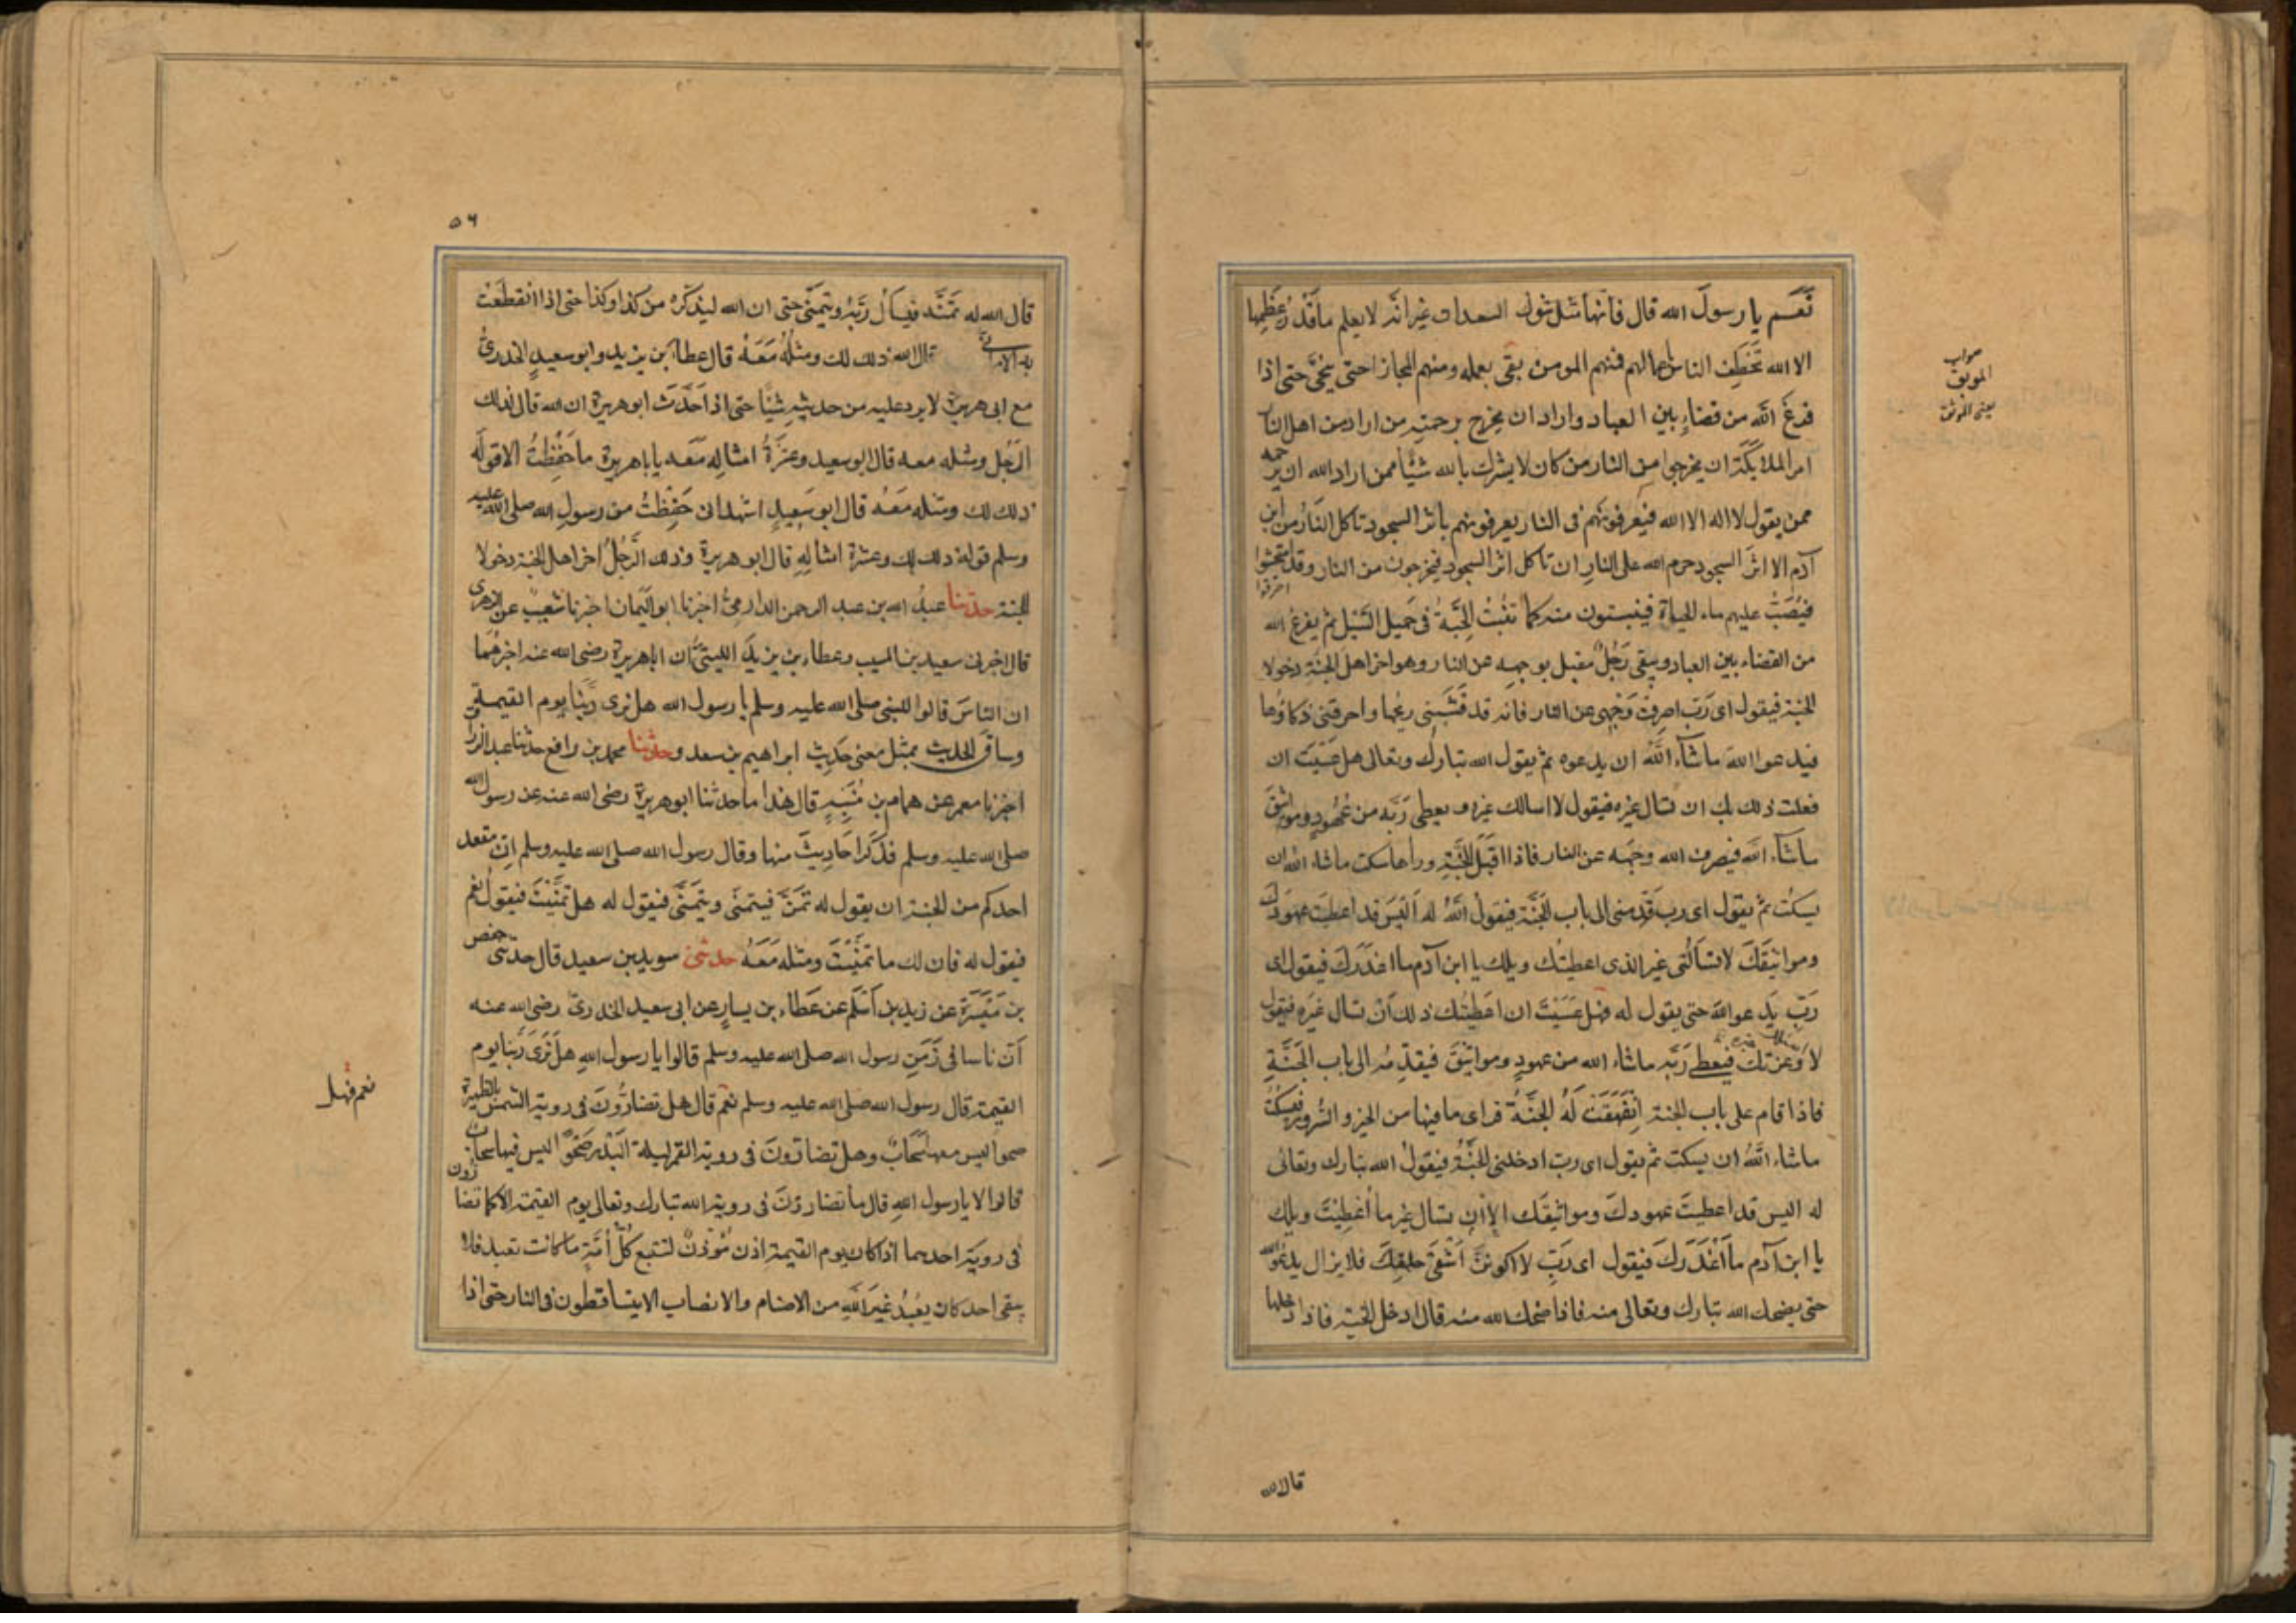 نَعَم يا رسولَ الله قال فانّها مثل شوك السعدان غير انّه لا يعلم ما قَدْرُ عِظَمِها
الا الله تَخطِفُ الناس باعمالهم فمنهم المومن بقى بعمله ومنهم المجازا حتى ينجّى حتى اذا
فرغَ الله من قضاءِ بين العباد واراد ان يخرج برحمته من اراد من اهل النار
امر الملايكَة ان يخرجوا من النار من كان لا يشرك بالله شَيْئا ممن اراد الله ان يرحمه
ممن يقول لا اله الا الله فيَعرفونَهم فى النار يعرفونهم باثر السجود تاكل النارُ من ابن
آدم الا اثرَ السجود حرم الله على النارِ ان تاكل اثر السجود فيخرجون من النار وقد امتحشوا
احترقوا
فيُصَبُّ عليهم ماء الحياة فينبتون منه كما تَنْبُتُ الحِبَّةُ فى حَمِيل السَّيْل ثم يفرغ الله
من القضاء بين العباد ويبقى رَجُلٌ مقبل بوجهه عن النار وهو اخر اهل الجنّةِ دخولا
الجنة فيقول اى رَبّ اصرِفْ وَجْهى عن النار فانه قد قَشَبَنى ريحُها واحرقنى ذكاؤُها
فيدعوا اللهَ ما شَآءَ اللهُ ان يدعوه ثم يقول الله تبارك وتعالى هل عَسَيْتَ ان
فعلت ذلك بك ان تسال غيره فيقول لا اسالك غيره ويعطى رَبَّه من عُهُودٍ ومواثيقَ
ما شآء الله فيصرف الله وجهَه عن النار فاذا اقبَلَ للجَنّةِ وراها سكت ما شاء الله ان
يسكت ثم يقول اى رب قَدِّمنى الى باب الجَنّة فيقول اللهُ له اَلَيْسَ قد اعطيت عهودَك
ومواثيقَكَ لا تسالُنى غير الذى اعطيتُك ويلك يا ابن آدم ما اغدَرَكَ فيقول اى
رَبّ يَدعو اللهَ حتى يقول له فهل عَسَيْتَ ان اعطَيْتُك ذلك اَنْ تسال غَيْرَه فيقول
لا وَعِزتك فيعطى رَبَّه ما شاء الله من عهودٍ ومواثيقَ فيقدِّمُه الى باب الجَنَّةِ
فاذا قام على باب الجنة اِنْفَهَقَتْ لَهُ الجنَّةُ فراى ما فيها من الخير والسُّرور فيسكتُ
ما شاء اللهُ ان يسكت ثم يقول اى ربّ ادخلنى الجَنَّة فيقول الله تبارك وتعالى
له اليس قد اعطيتَ عهودكَ ومواثيقَك الا اَنْ تسال غير ما اُعْطِيْتَ ويلك
يا ابن آدم ما اَغْدَرَكَ فيقول اى رَبِّ لا اكوننَّ اَشْقَى خلقِكَ فلا يزال يدعُو الله
حتى يضحك الله تبارك وتعالى منه فاذا ضحك الله منه قال ادخل الجَنة فاذا دخلها
صواب
الموبق
يعنى الموثق
قال الله
٥٦
قال الله له تمَنَّه فيسألُ رَبَّهُ ويتمنّى حتى ان الله ليذكره من كذا وكذا حتى اذا انقطعَتْ
به الامانىّ قال الله ذلك لك ومثلُهُ مَعَهُ قال عطاء بن يزيد وابو سعيدٍ الخدرىُّ
مع ابى هريرة لا يرد عليه من حديثهِ شَيْئًا حتى اذا حَدَّثَ ابو هريرة ان الله قال لذلك
الرَّجُل ومثله معه قال ابو سعيد وعشرَةُ امثاله مَعَه يا باهريرة ما حَفِظتُ الا قولَه
ذلك لك ومثله مَعَهُ قال ابو سَعِيدٍ اشهد انى حَفِظْتُ من رسولِ الله صلى الله عليه
وسلم قولهُ ذلك لك وعشرة امثالِهِ قال ابو هريرة وذلك الرَّجُلُ اخر اهل الجنة دخولا
الجنة حدّثنا عبدُ الله بن عبد الرحمن الدارمىّ اخبرنا ابو اليَمان اخبرنا شعيبٌ عن الزهرى
قال اخبرنى سعيد بن المسيب وعطاء بن يزيدَ الليثىُّ ان اباهريرة رضى الله عنه اخبرهُما
ان الناسَ قالوا للنبى صلى الله عليه وسلم يا رسول الله هل نرى ربَّنا يوم القيمة
وساقَ الحديث بمثل معنى حَدِيثِ ابراهيم بن سعد وحدّثنا محمد بن رافع حدثنا عبد الرزاق
اخبرنا معمر عن همام بن مُنَبِّهٍ قال هذا ما حدثنا ابو هريرة رضى الله عنه عن رسول الله
صلى الله عليه وسلم فذكَرَ احَادِيثَ منها وقال رسول الله صلى الله عليه وسلم اِنَّ مقعد
احدكم من الجنة ان يقول له تَمَنَّ فيتمنّى ويتمنّى فيقول له هل تمنَّيْتَ فيقولُ نعم
فيقول له فان لك ما تمنَّيْتَ ومثله مَعَهُ حدثنى سويد بن سعيد قال حدثنى حفص
بن مَيْسَرَةَ عن زيد بن اَسْلَمَ عن عَطَاء بن يسارٍ عن ابى سعيد الخدرىّ رضى الله عنه
اَنّ ناسا فى زَمَنِ رسول الله صلى الله عليه وسلم قالوا يا رسول الله هل نَرَى رَبَّنا يوم
القيمة قال رسول الله صلى الله عليه وسلم نعم قال هل تضارُّونَ فى روية الشمس بالظهيرة
صحوا ليس معها سَحَابٌ وهل تضارّونَ فى روية القمر ليلة البَدْر صَحْوًا ليس فيها سحاب
قالوا لا يا رسول الله قال ما تضارّونَ فى روية الله تبارك وتعالى يوم القيمة الا كما تضارّون
فى روية احدهما اذا كان يوم القيمة اذن مُؤذنٌ لتتبع كُلُّ اُمَّةٍ ما كانت تعبد فلا
يبقى احد كان يَعْبُدُ غيرَ اللهِ من الاصنام والانصاب الا يتساقطون فى النار حتى اذا
نعم فهل